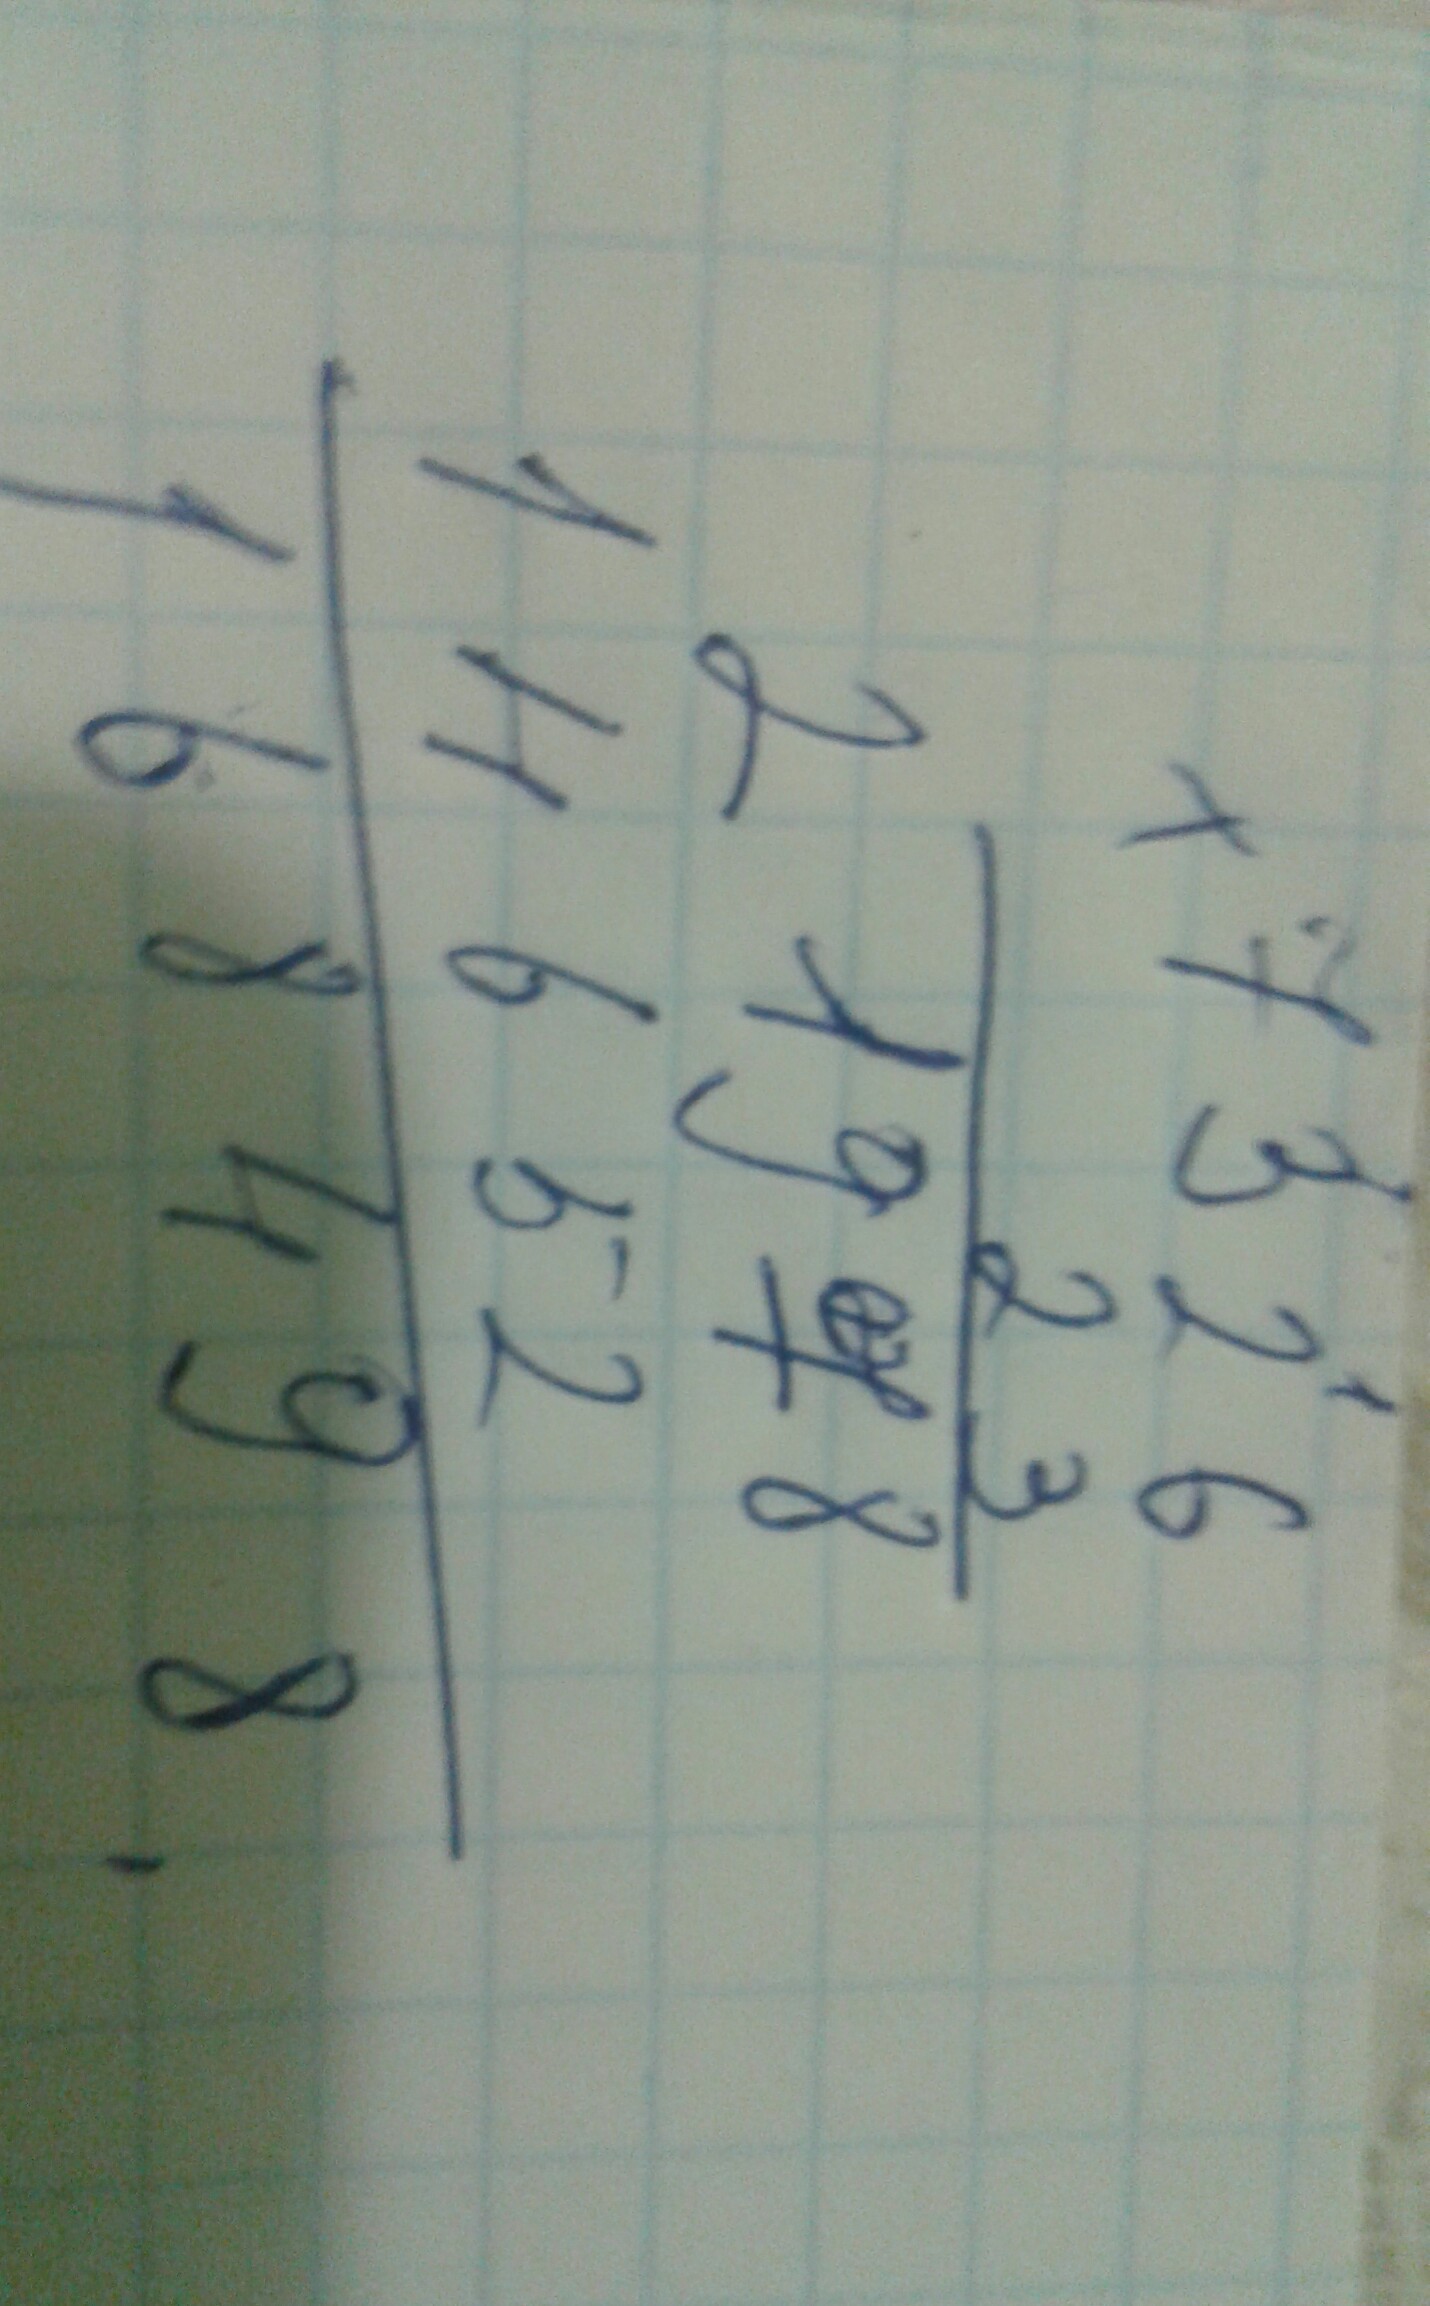 × 7326
23
21978
14652
168498